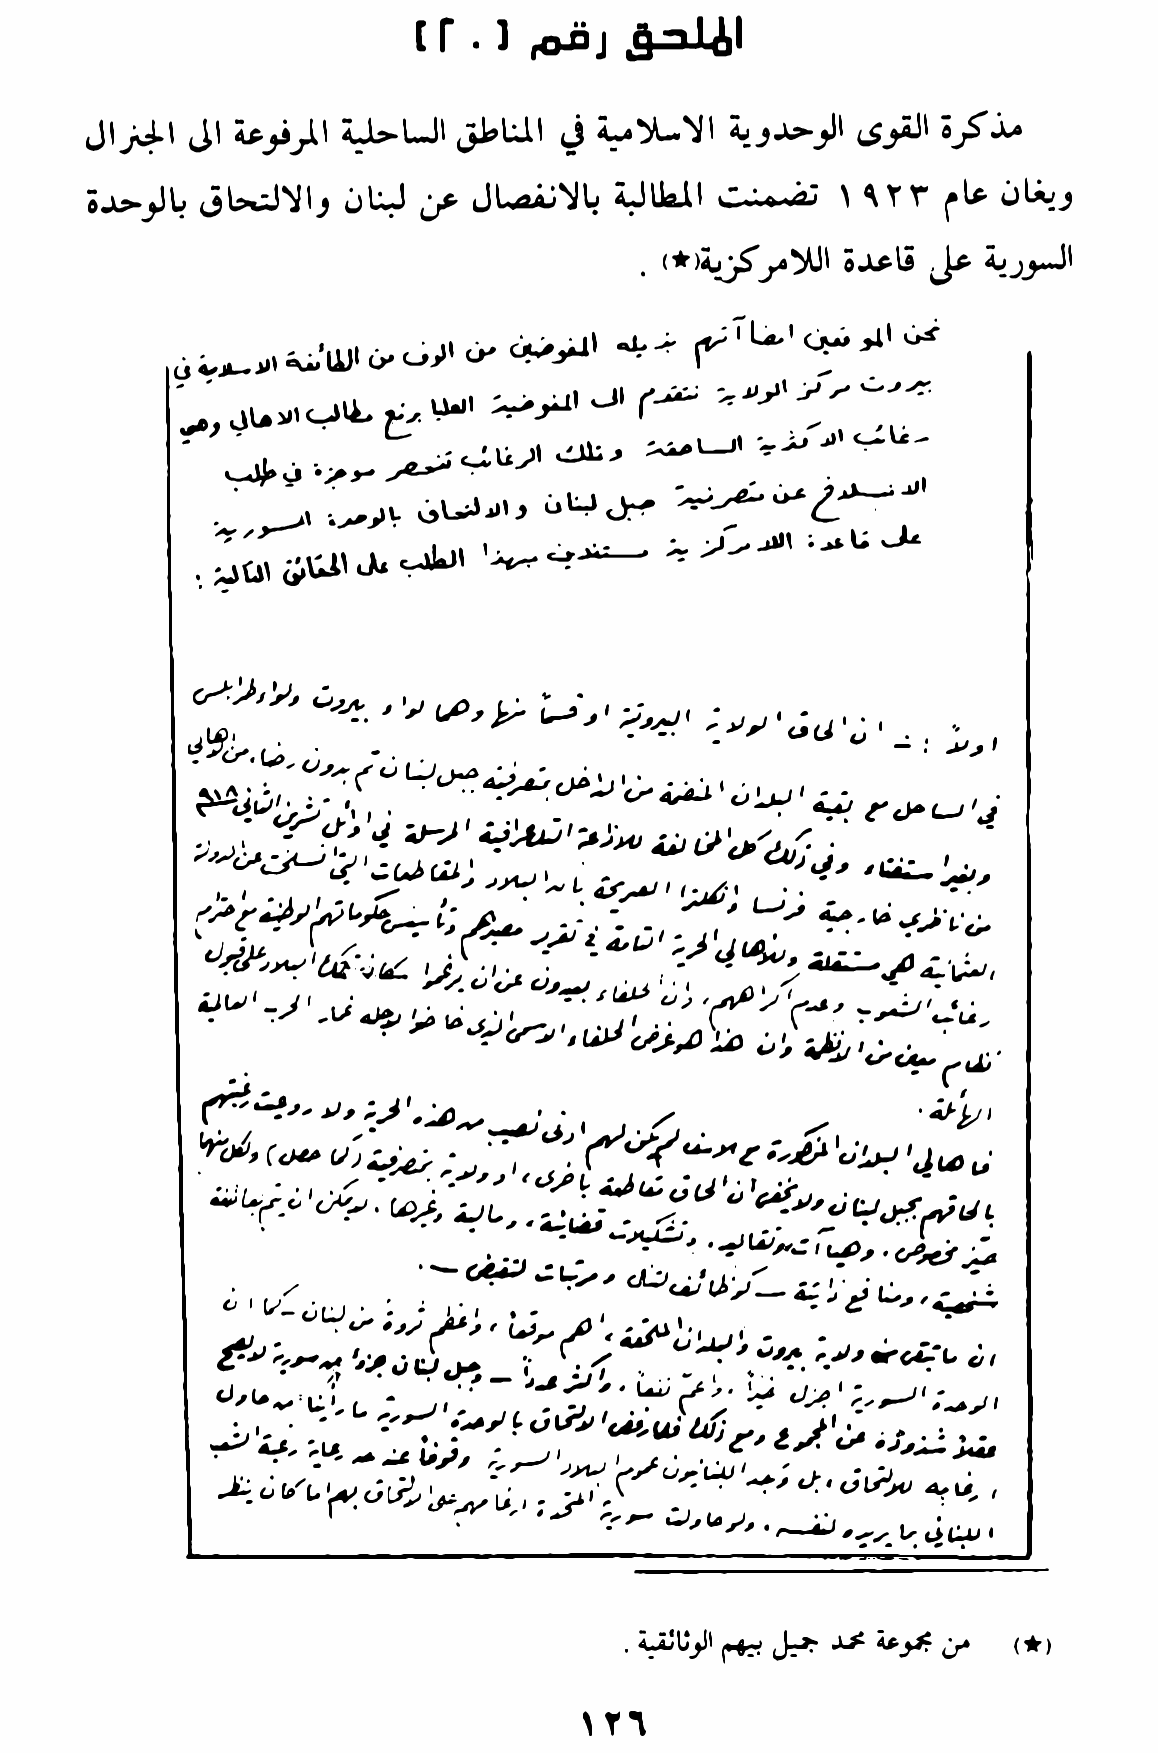 الملحق رقم [٢٠]
مذكرة القوى الوحدوية الاسلامية في المناطق الساحلية المرفوعة الى الجنرال
ويغان عام ١٩٢٣ تضمنت المطالبة بالانفصال عن لبنان والالتحاق بالوحدة
السورية على قاعدة اللامركزية(★) .
نحن الموقعين امضاآتهم بذيله المفوضين من الوف من الطائفة الاسلامية في
بيروت مركز الولاية نتقدم الى المفوضية العليا برفع مطالب الاهالي وهي
رغائب الاكثرية الساحقة وتلك الرغائب تنحصر موجزة في طلب
الانسلاخ عن متصرفية جبل لبنان والالتحاق بالوحدة السورية
على قاعدة اللامركزية مستندين بهذا الطلب على الحقائق التالية :
اولاً : – ان الحاق الولاية البيروتية او قسماً منها وهما لواء بيروت ولواء طرابلس
في الساحل مع بقية البلدان المنضمة من الداخل بمتصرفية جبل لبنان تم بدون رضاء من الاهالي
وبغير استفتاء وفي ذلك كل المخالفة للاذاعة التلغرافية المرسلة في اوائل تشرين الثاني ٩١٨
من ناظري خارجية فرنسا وانكلترا الصريحة بان البلاد والمقاطعات التي انسلخت عن الدولة
العثمانية هي مستقلة وللاهالي الحرية التامة في تقرير مصيرهم وتأسيس حكوماتهم الوطنية مع احترام
رغائب الشعوب وعدم اكراههم، وان الحلفاء بعيدون عن ان يرغموا سكان تلك البلاد على قبول
نظام معين من الانظمة وان هذا هو غرض الحلفاء الاسمى الذي خاضوا لاجله غمار الحرب العالمية
الهائلة .
فاهالي البلدان المذكورة مع الاسف لم يكن لهم ادنى نصيب من هذه الحرية ولا روعيت رغبتهم
بالحاقهم بجبل لبنان ولا يخفى ان الحاق مقاطعة باخرى، او ولاية بمتصرفية (كما حصل) ولكل منهما
حيّز مخصوص، وهيآت، وتقاليد، وتشكيلات قضائية، ومالية وغيرها، لا يمكن ان يتم بعاطفة
شخصية، ومنافع ذاتية – كوظائف تنال ومرتبات تقبض – .
ان ما تبقى من ولاية بيروت والبلدان الملحقة، اهم موقعاً، واعظم ثروة من لبنان – كما ان
الوحدة السورية اجزل خيراً، واعمّ نفعاً، واكثر عدداً – وجبل لبنان جزء من سورية لا يصح
عقلاً شذوذه عن المجموع ومع ذلك فلما رفض الالتحاق بالوحدة السورية ما رأينا من حاول
ارغامه للالتحاق، بل وجد اللبنانيون عموم البلاد السورية وقوفاً عند حد رعاية رغبة الشعب
اللبناني بما يريده لنفسه، ولو حاولت سورية المتحدة ارغامهم على الالتحاق بهم اما كان ينظر
(★) من مجموعة محمد جميل بيهم الوثائقية .
١٢٦